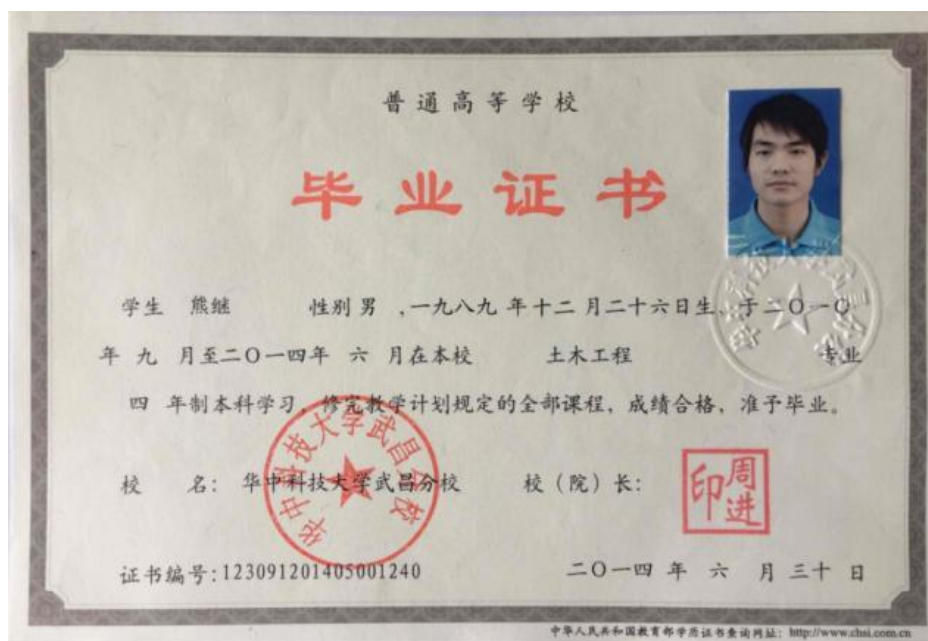 普通高等学校
毕业证书
学生 熊继 性别 男 ,一九八九 年 十二 月 二十六日生、于二〇一〇
年 九 月至二〇一四年 六 月在本校 土木工程 专业
四 年制本科学习，修完教学计划规定的全部课程，成绩合格，准予毕业。
校 名： 华中科技大学武昌分校 校（院）长：
华中科技大学武昌分校
周进印
证书编号:123091201405001240 二〇一四 年 六 月 三十 日
中华人民共和国教育部学历证书查询网址：http://www.chsi.com.cn